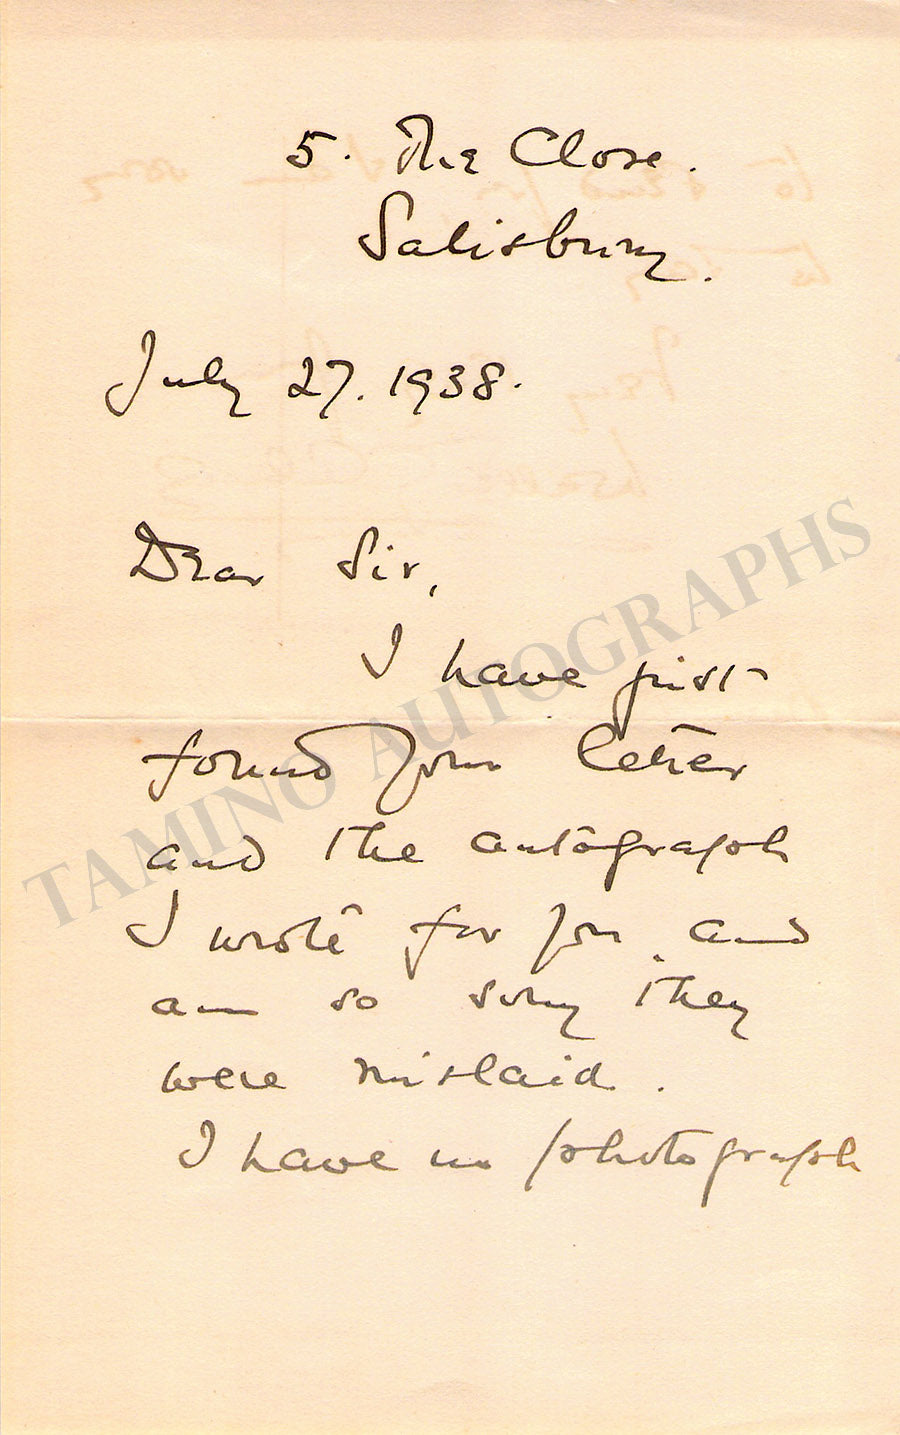 5. The Close.
Salisbury.
July 27. 1938.
Dear Sir,
I have just
found your letter
and the autograph
I wrote for you and
am so sorry they
were mislaid.
I have no photograph
TAMINO AUTOGRAPHS